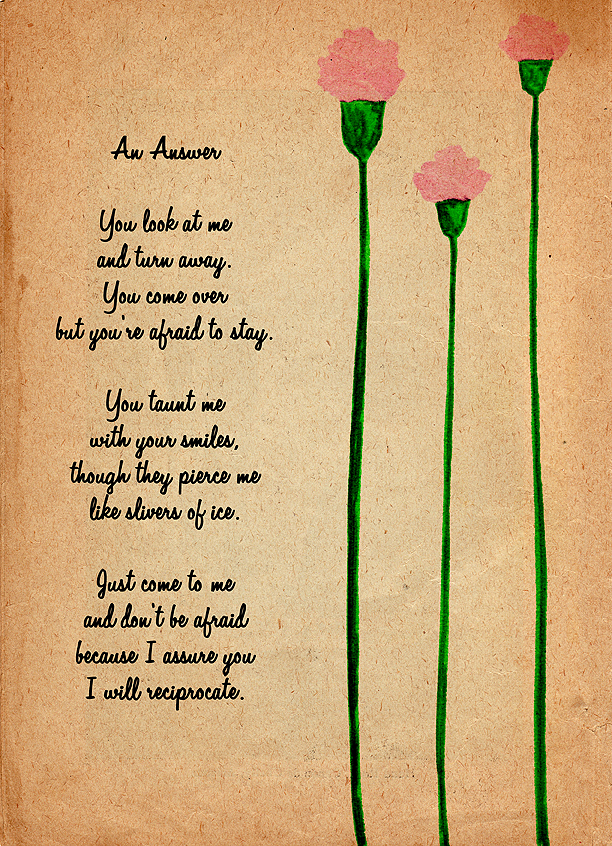 An Answer
You look at me
and turn away.
You come over
but you're afraid to stay.
You taunt me
with your smiles,
though they pierce me
like slivers of ice.
Just come to me
and don't be afraid
because I assure you
I will reciprocate.